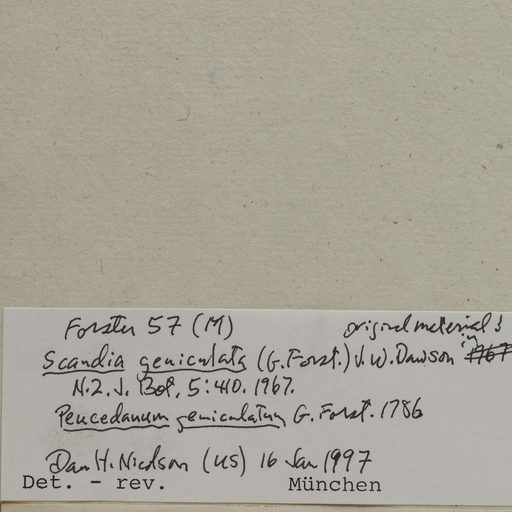 Forster 57 (M) original material!
Scandia geniculata (G. Forst.) J.W. Dawson in 1967
N.Z.J. Bot, 5:410. 1967.
Peucedanum geniculatum G. Forst. 1786
Dan H. Nicolson (US) 16 Jan 1997
Det. - rev. München